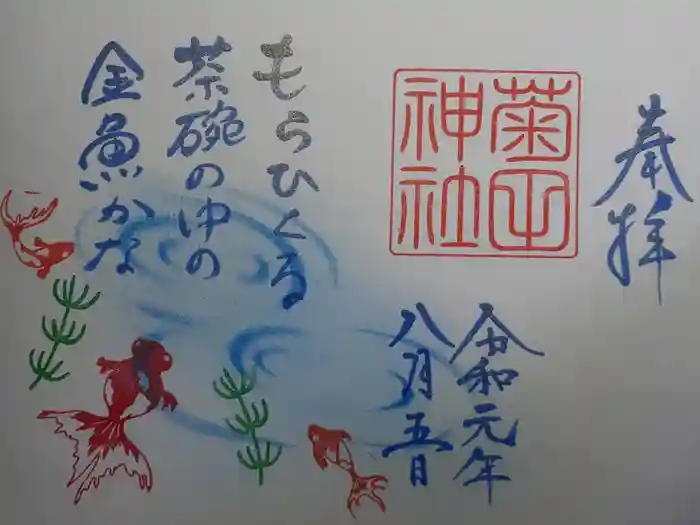 奉拝
菊田
神社
令和元年
八月五日
もらひくる
茶碗の中の
金魚かな